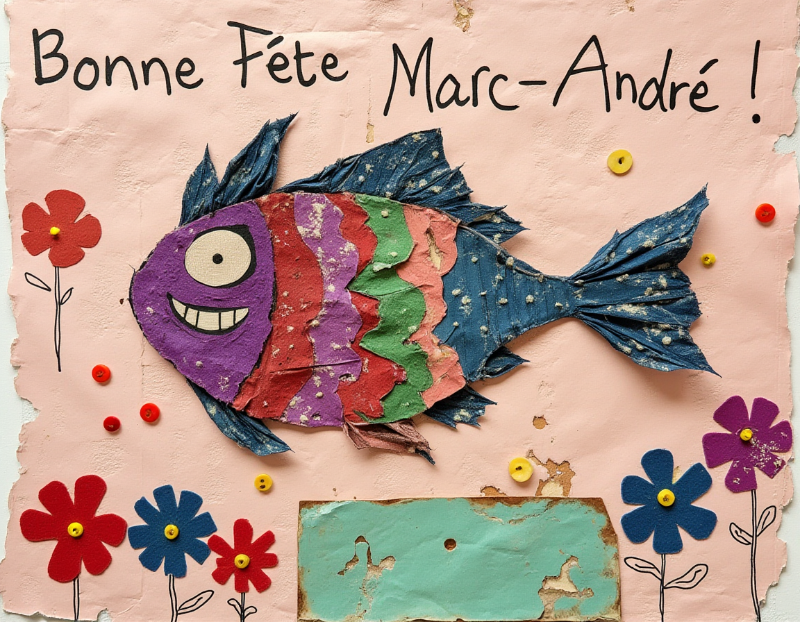 Bonne Féte Marc-André !